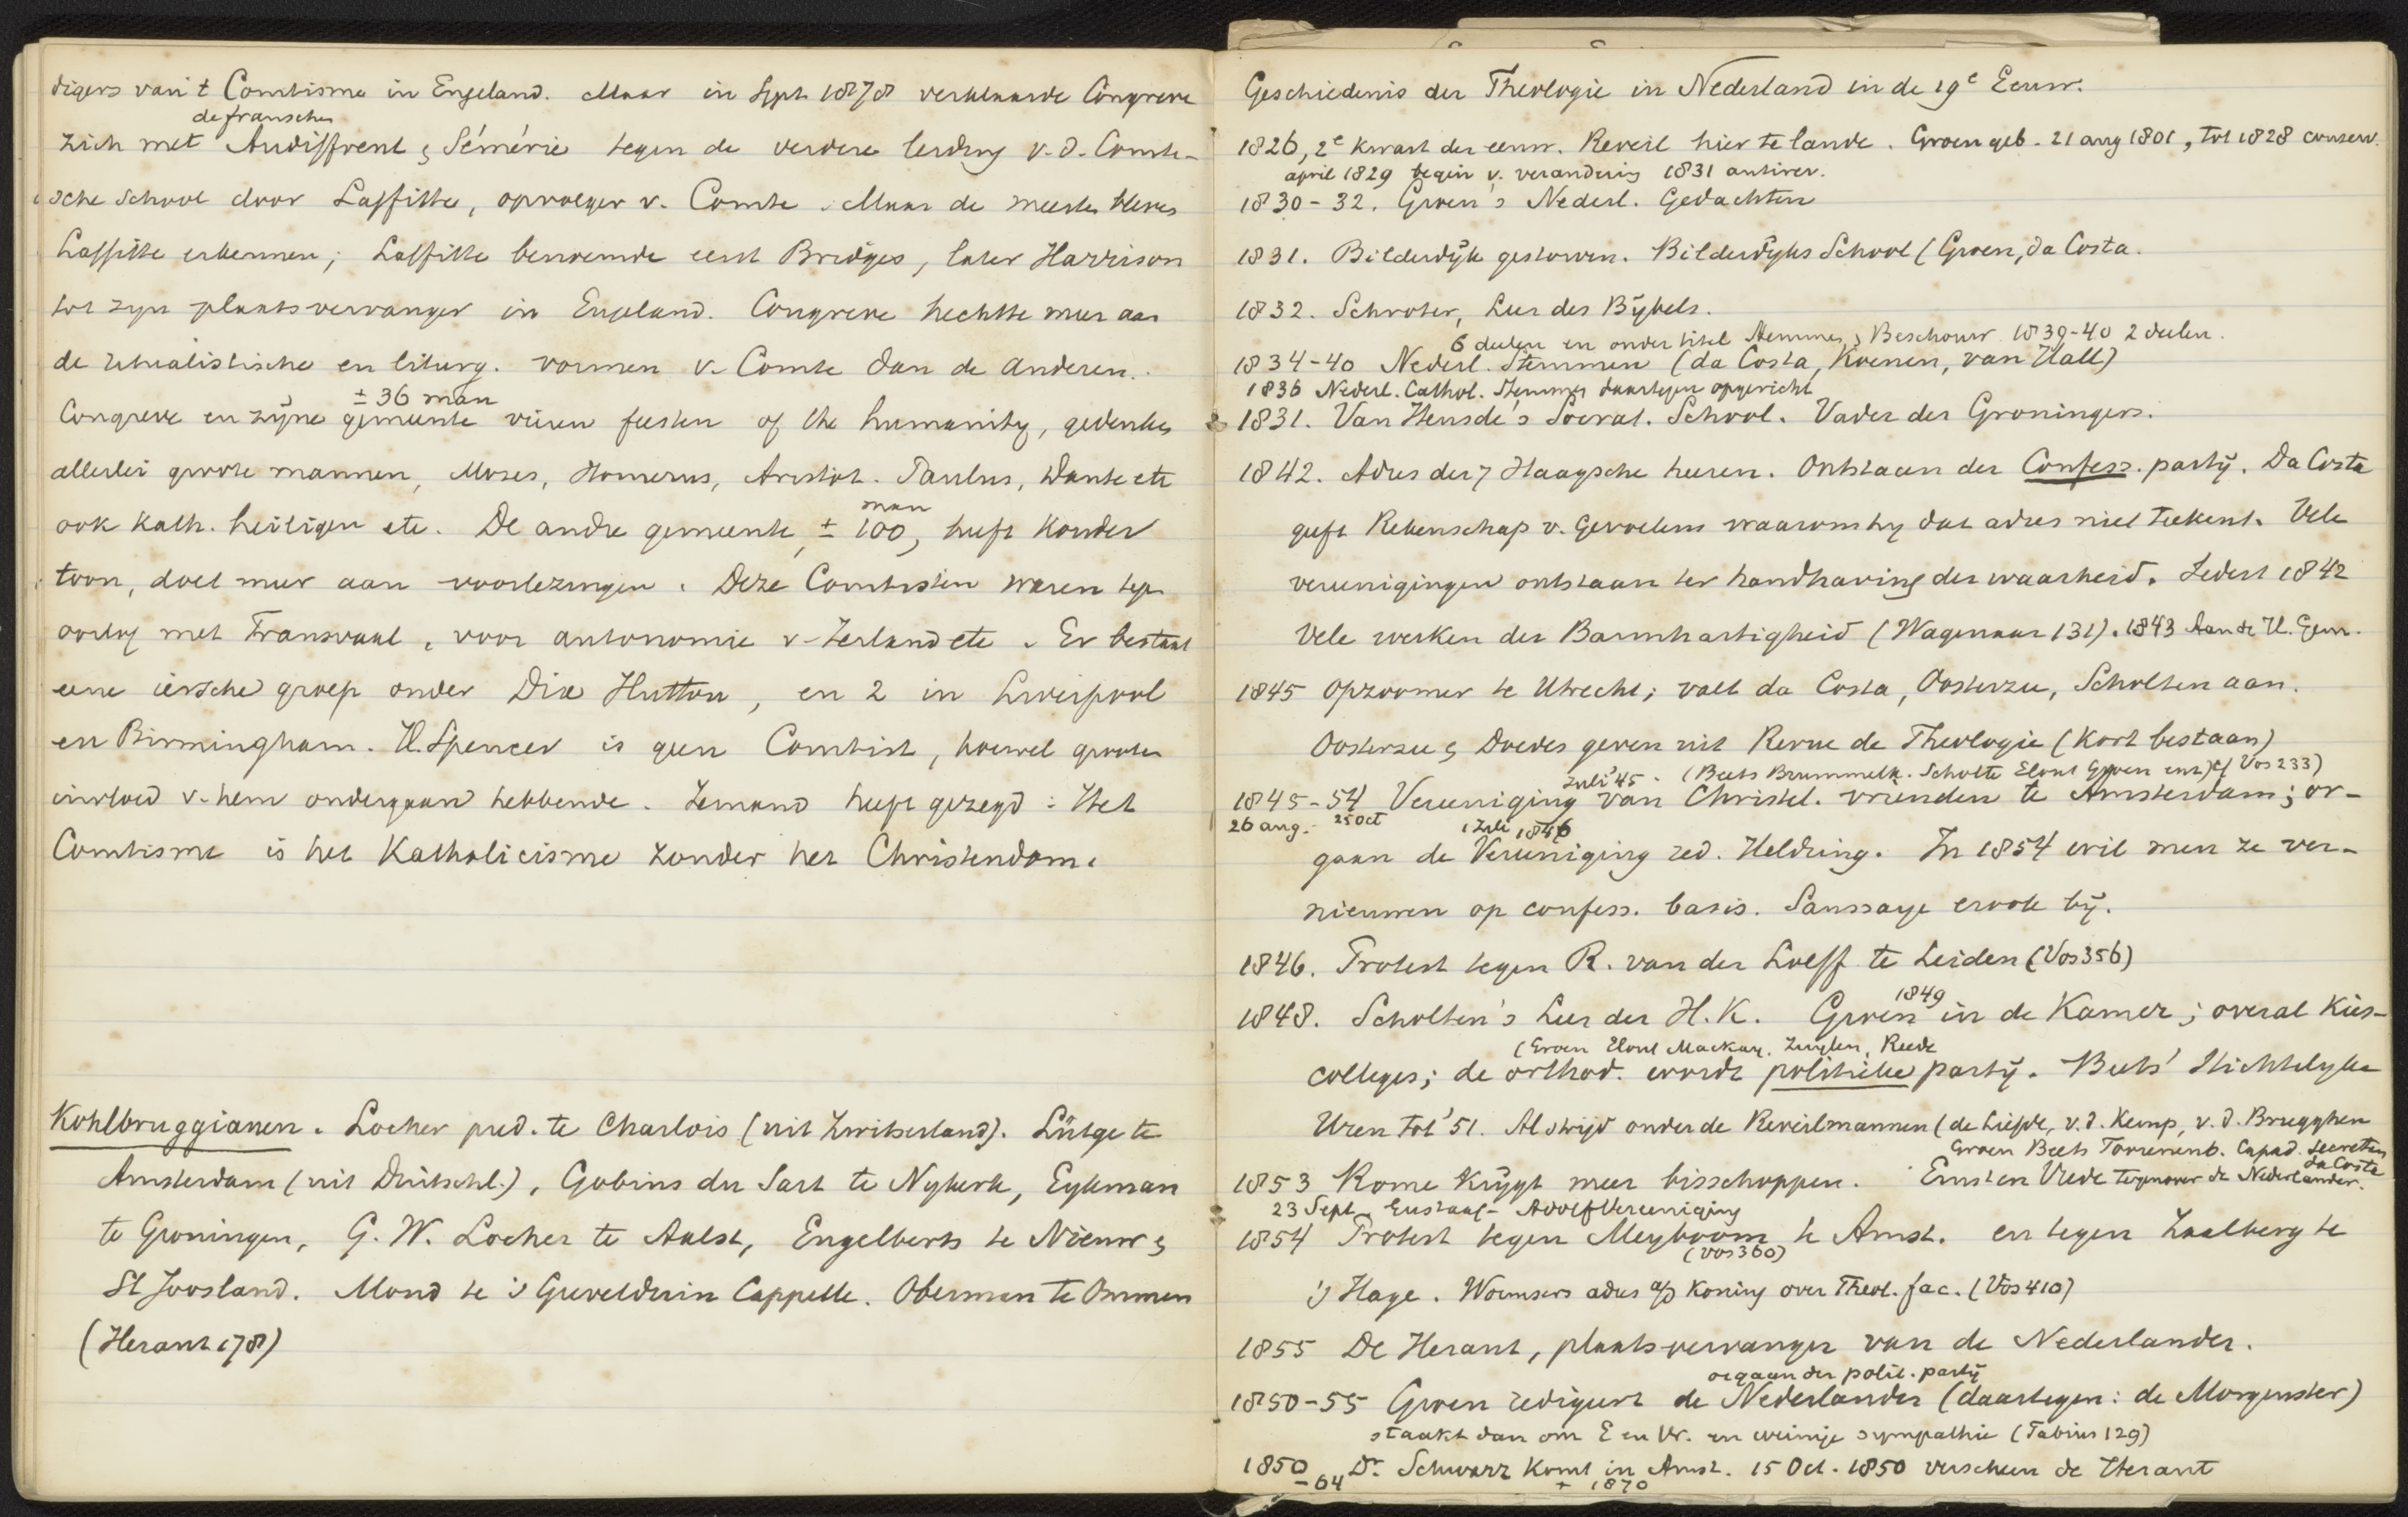 digers van 't Comtisme in Engeland. Maar in Sept 1878 verklaarde Congreve
de franschen
zich met Audiffrent & Sémérie tegen de verdere leiding v. d. Comte-
sche School door Laffitte, opvolger v. Comte. Maar de meesten bleven
Laffitte erkennen; Laffitte benoemde eerst Bridges, later Harrison
tot zijn plaatsvervanger in Engeland. Congreve hechtte meer aan
de ritualistische en liturg. vormen v. Comte dan de anderen.
± 36 man
Congreve en zijne gemeente vieren feesten of the humanity, gedenken
allerlei groote mannen, Mozes, Homerus, Aristot. Paulus, Dante etc
ook Kath. heiligen etc. De andre gemeente, ± 100 man, heeft Konder
toon, doet meer aan voorlezingen. Deze Comtisten waren tegen
oorlog met Transvaal, voor autonomie v. Ierland etc. Er bestaat
eene iersche groep onder Dix Hutton, en 2 in Liverpool
en Birmingham. H. Spencer is geen Comtist, hoewel grooten
invloed v. hem ondergaan hebbende. Iemand heeft gezegd: Het
Comtisme is het Katholicisme zonder het Christendom.
Kohlbruggianen. Locher pred. te Charlois (uit Zwitserland). Lütge te
Amsterdam (uit Duitschl.), Gobius du Sart te Nykerk, Eykman
te Groningen, G. W. Locher te Aalst, Engelberts te Nieuw &
St Joosland. Mond te 's Grevelduin Cappelle. Oberman te Ommen
(Heraut 178)
Geschiedenis der Theologie in Nederland in de 19e Eeuw.
1826, 2e kwart der eeuw. Reveil hier te lande. Groen geb. 21 aug 1801, tot 1828 conserv.
april 1829 begin v. verandering 1831 antirev.
1830-32. Groen's Nederl. Gedachten
1831. Bilderdijk gestorven. Bilderdijks School (Groen, da Costa.
1832. Schroter, Leer des Bijbels.
6 deelen en onder titel Stemmen & Beschouw. 1839-40 2 deelen.
1834-40 Nederl. Stemmen (da Costa, Koenen, van Hall)
1836 Nederl. Cathol. Stemmen daartegen opgericht
1831. Van Heusde's Socrat. School. Vader der Groningers.
1842. Adres der 7 Haagsche heeren. Ontstaan der Confess. partij. Da Costa
geeft Rekenschap v. Gevoelens waarom hij dat adres niet teekent. Vele
vereenigingen ontstaan ter handhaving der waarheid. Sedert 1842
Vele werken der Barmhartigheid (Wagenaar 131). 1843 Aan de H. Gem.
1845 Opzoomer te Utrecht; valt da Costa, Oosterzee, Scholten aan.
Oosterzee & Doedes geven uit Revue de Theologie (kort bestaan)
Juli '45. (Beets Brummelk. Scholte Elout Groen enz) cf Vos 233)
1845-54 Vereeniging van Christel. vrienden te Amsterdam; or-
26 aug. 25 Oct 1 Juli 1846
gaan de Vereeniging red. Heldring. In 1854 wil men ze ver-
nieuwen op confess. basis. Saussaye er ook bij.
1846. Protest tegen R. van der Loeff te Leiden (Vos 356)
1849
1848. Scholten's Leer der H. K. Groen in de Kamer; overal Kies-
(Groen Elout Mackay. Zuylen, Reede
colleges; de orthod. wordt politieke partij. Beets' Stichtelyke
Uren tot '51. Al strijd onder de Reveilmannen (de Liefde, v. d. Kemp, v. d. Brugghen
Groen Beets Torrenenb. Capad. Secretan
da Costa
1853 Rome krijgt meer bisschoppen. Ernst en Vrede tegenover de Nederlander.
23 Sept. Gustaaf-Adolf Vereeniging
1854 Protest tegen Meyboom te Amst. en tegen Zaalberg te
(Vos 360)
's Hage. Wormsers adres a/d Koning over Theol. fac. (Vos 410)
1855 De Heraut, plaatsvervanger van de Nederlander.
orgaan der polit. partij
1850-55 Groen redigeert de Nederlander (daartegen: de Morgenster)
staakt dan om E en Vr. en weinige sympathie (Fabius 129)
1850 Dr. Schwarz komt in Amst. 15 Oct. 1850 verscheen de Heraut
-64 + 1870